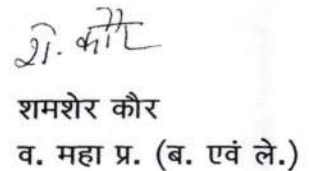 शे. कौर
शमशेर कौर
व. महा प्र. (ब. एवं ले.)